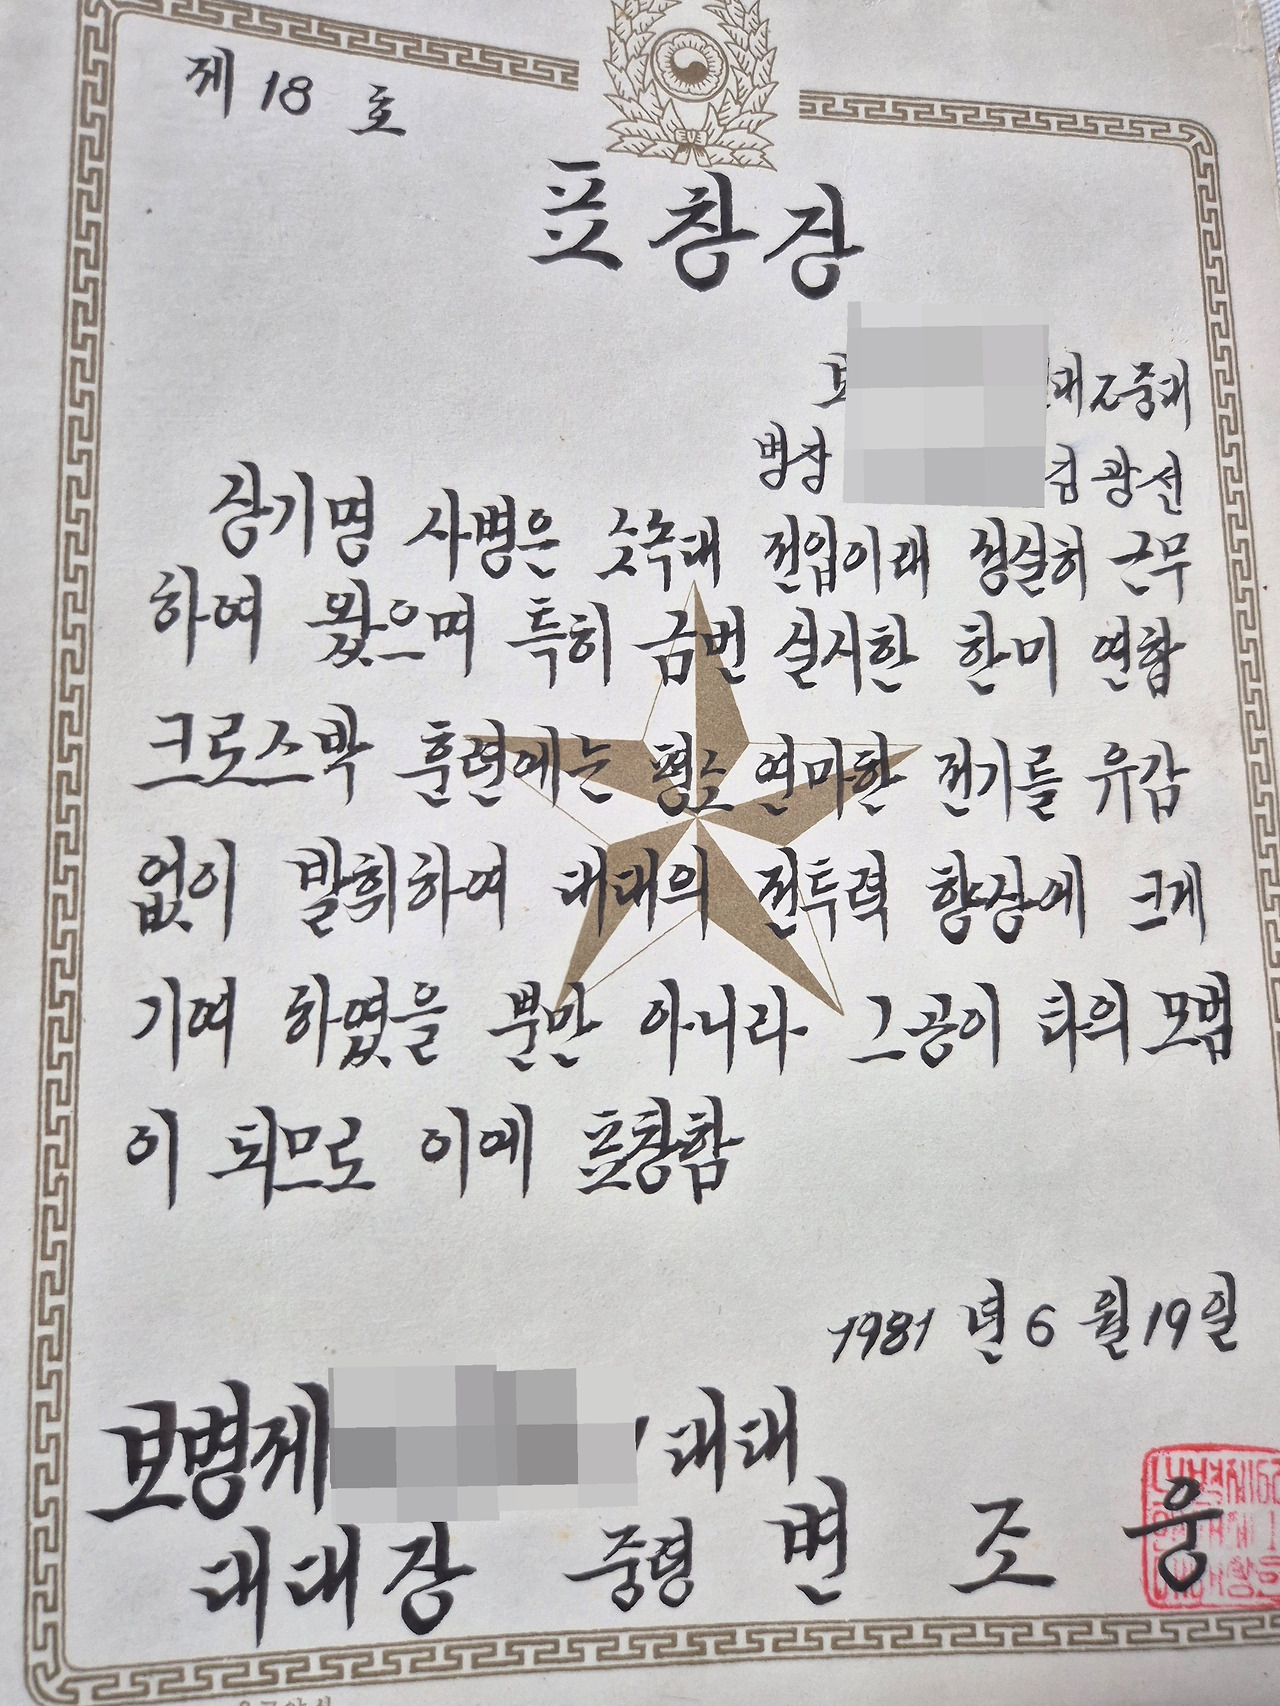 제 18 호
표창장
대 2중대
병장 김광선
상기명 사병은 소속대 전입이래 성실히 근무
하여 왔으며 특히 금번 실시한 한미 연합
크로스박 훈련에는 평소 연마한 전기를 유감
없이 발휘하여 대대의 전투력 향상에 크게
기여 하였을 뿐만 아니라 그공이 타의 모범
이 되므로 이에 표창함
1981 년 6 월 19일
보병제 대대
대대장 중령 변 조 웅